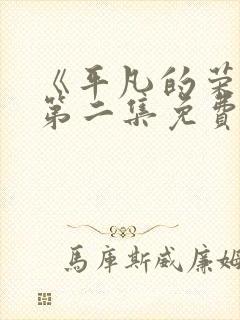 《平凡的荣
第二集免費
馬庫斯威廉姆